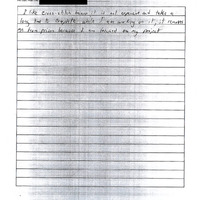 I like cross stitch because it is not expensive and takes a
long time to complete, while I am working on it, it removes
me from prison because I am focused on my project